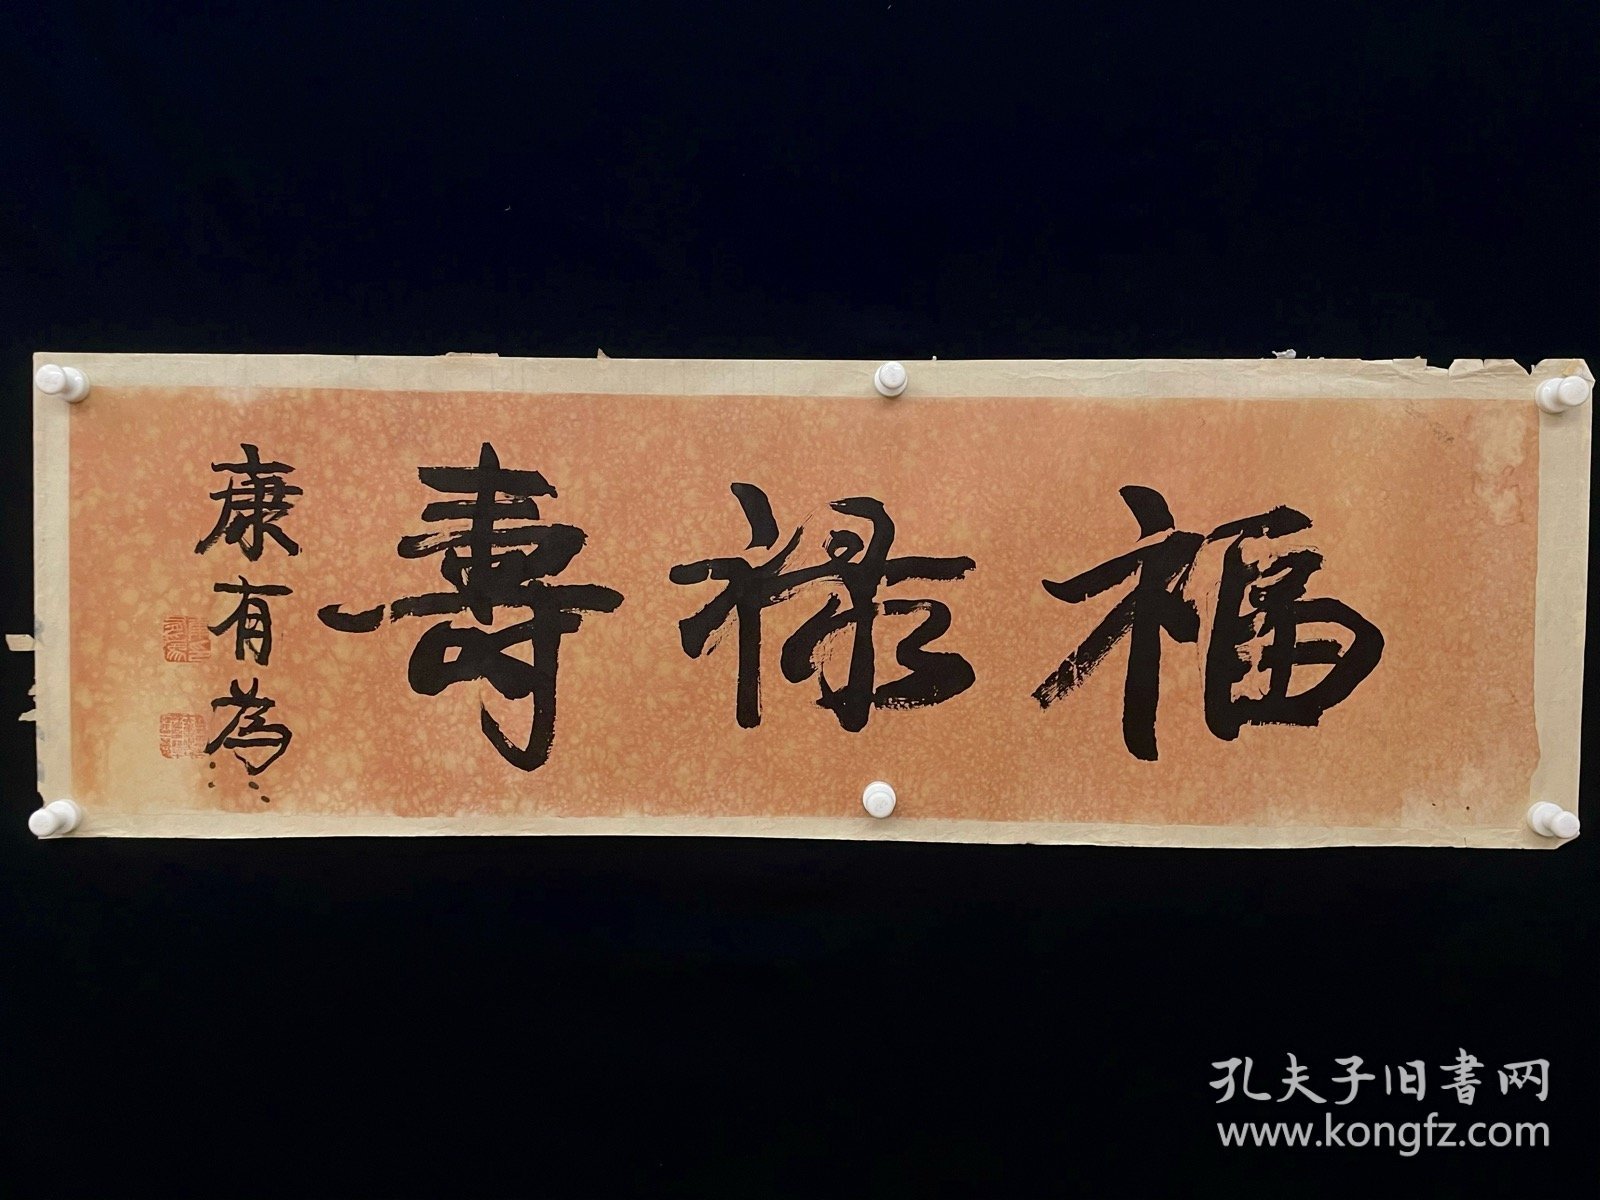 福禄壽
康有為
孔夫子旧書网
www.kongfz.com